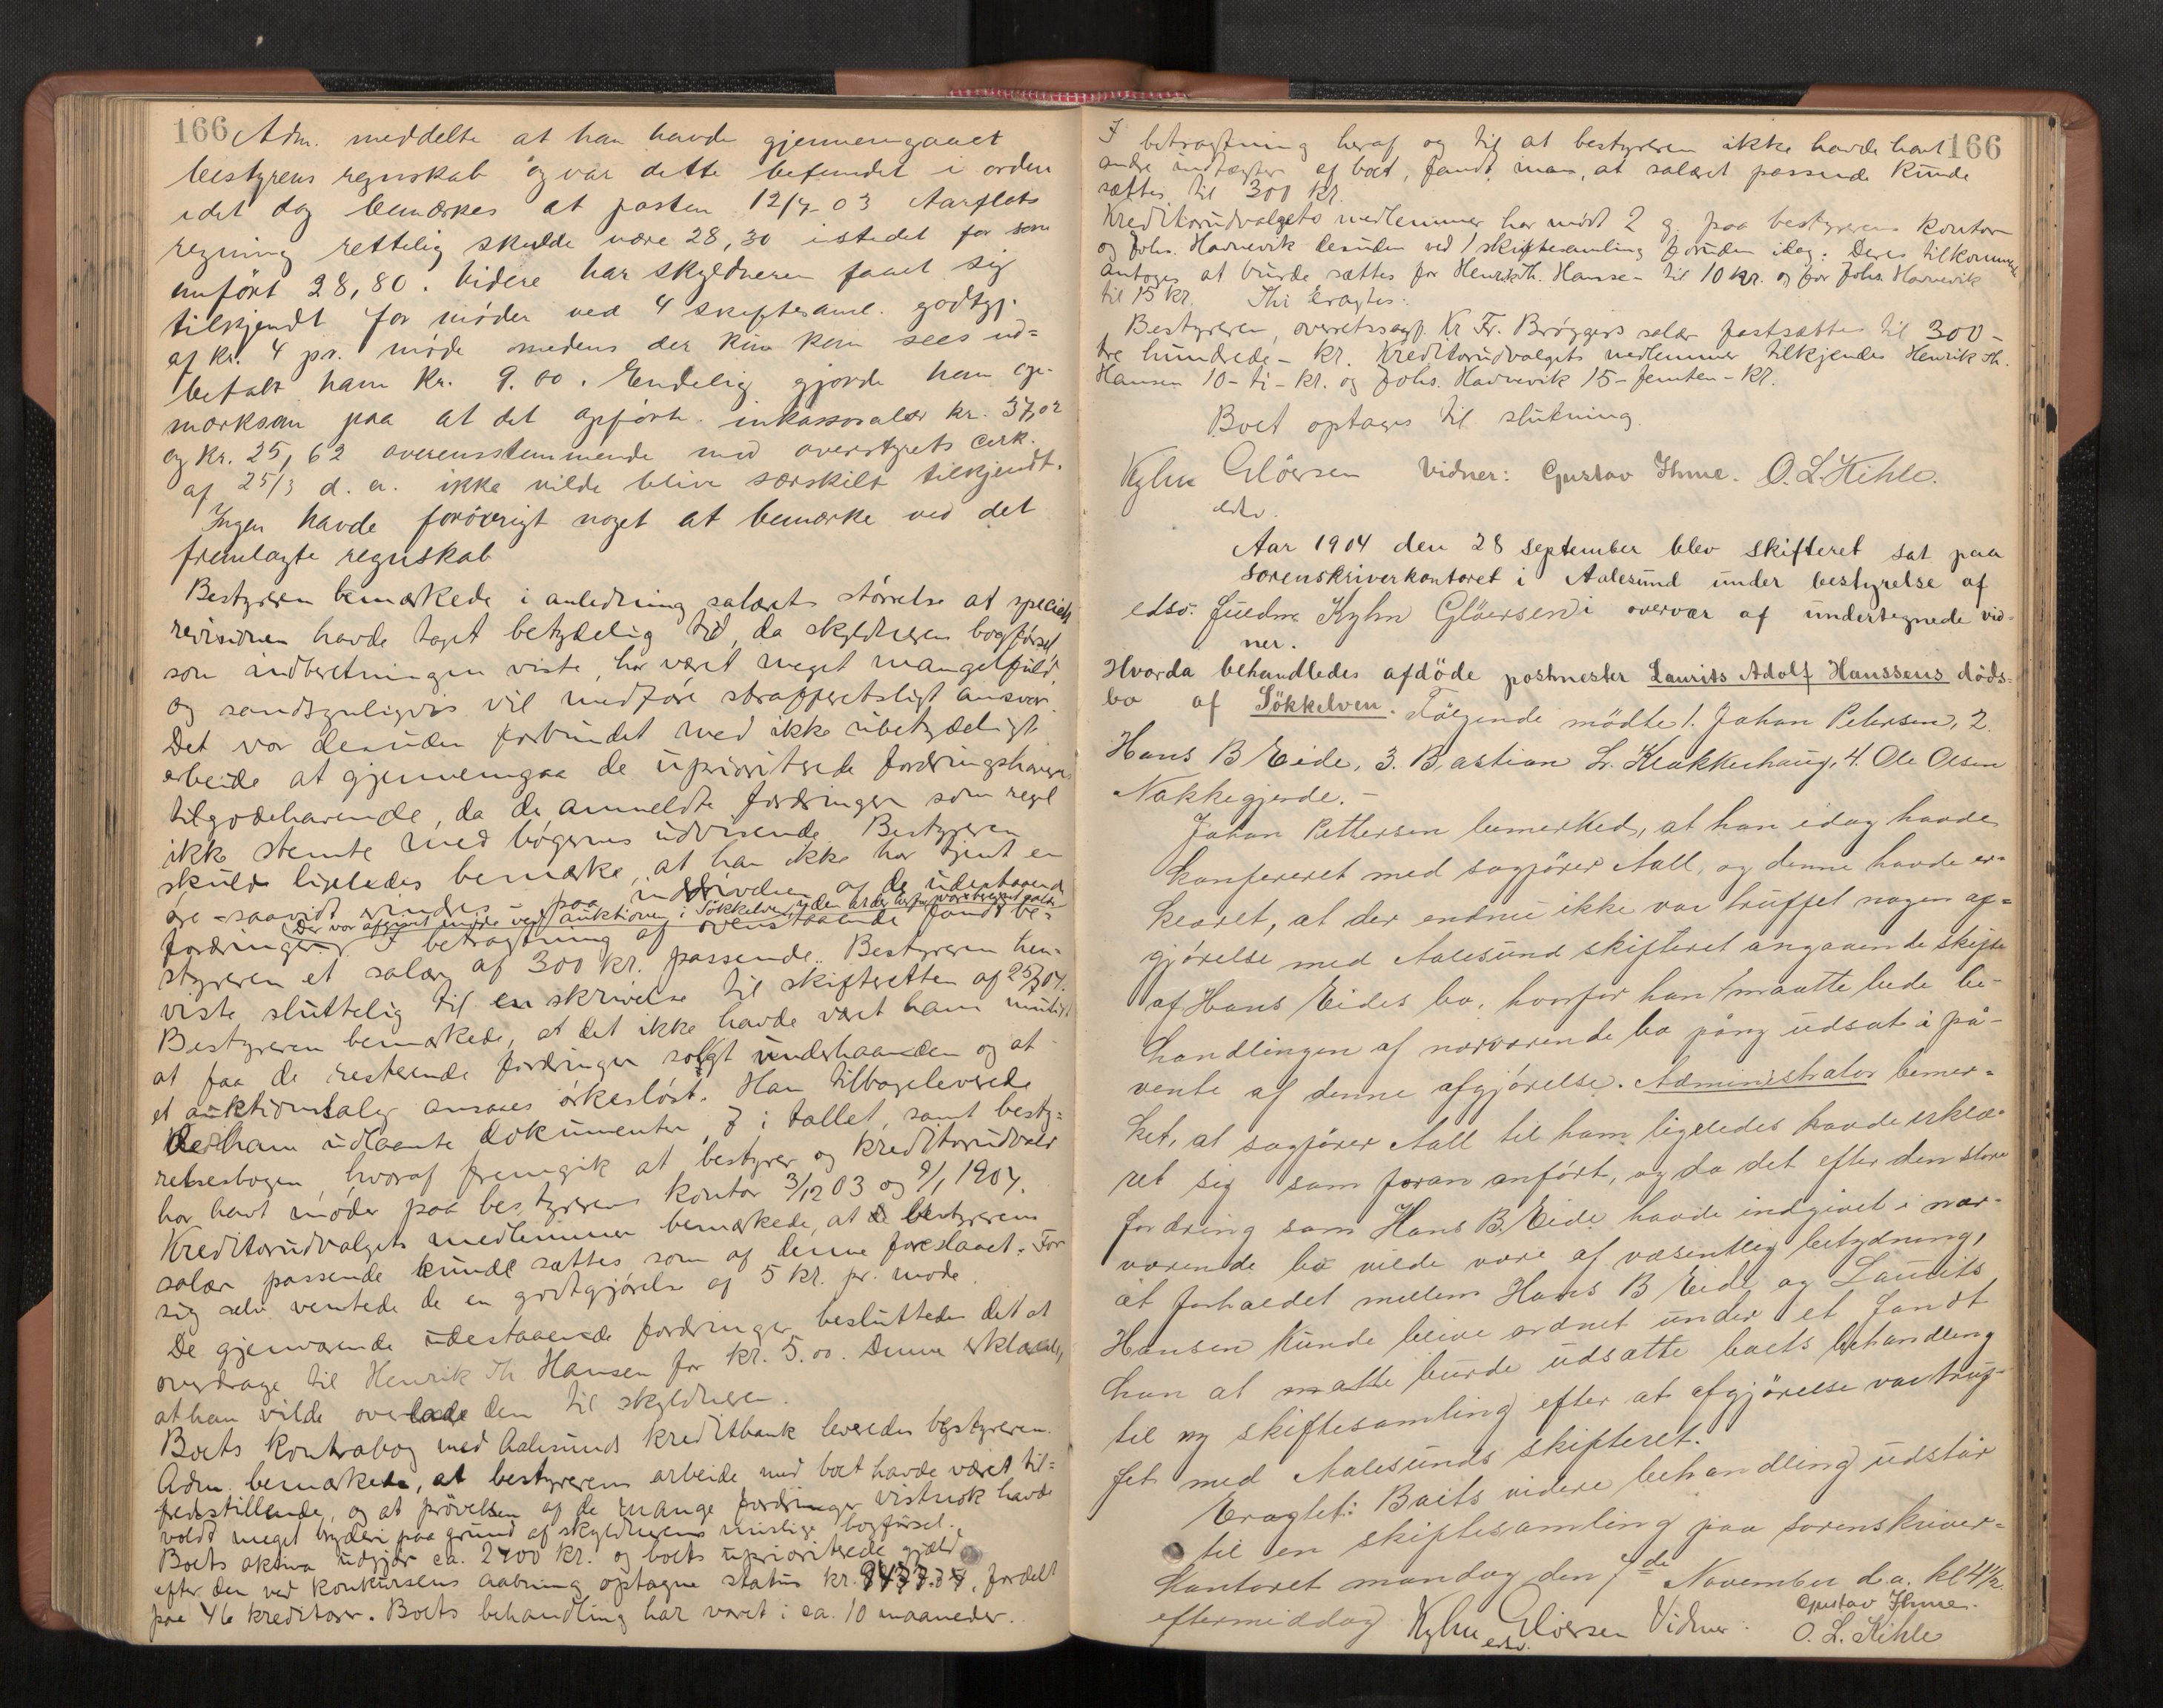 166 Adm. meddelte at han havde gjennemgaaet
bestyrens regnskab og var dette befundet i orden
idet dog bemærkes at posten 12/7-03 Aarflots
regning rettelig skulde være 28,30 istedet for som
anført 28,80. Videre har skyldneren faaet sig
tilkjendt for møder ved 4 skiftesaml. godtgj.
af kr. 4 pr. møde medens der kun kan sees ud-
betalt ham kr. 9.00. Endelig gjorde han op-
mærksom paa at det opførte inkassosalær kr. 37,02
og kr. 25,62 overensstemmende med overstyrets cirk.
af 25/3 d. a. ikke vilde blive særskilt tilkjendt.
Ingen havde forøvrigt noget at bemærke ved det
fremlagte regnskab
Bestyreren bemærkede i anledning salærets størrelse at specielt
revisionen havde taget betydelig tid, da skyldneren bogførsel,
som indberetningen viste, har været meget mangelfuld,
og sandsynligvis vil medføre strafferetsligt ansvar.
Det var desuden forbundet med ikke ubetydeligt
arbeide at gjennemgaa de uprioriterede fordringshaveres
tilgodehavende, da de anmeldte fordringer som regel
ikke stemte med bøgernes udvisende. Bestyreren
skulde ligeledes bemærke, at han ikke har tjent en
øre - saavidt vindes - paa inddrivelsen af de udestaaende
(Der var afgivet møde ved auktionen i Søkkelven, uden at der herfor var beregnet salær
fordringer. I betragtning af ovenstaaende fandt be-
styreren et salær af 300 kr. passende. Bestyreren hen-
viste sluttelig til en skrivelse til skifteretten af 25/7 04.
Bestyreren bemærkede, at det ikke havde været ham muligt
at faa de resterende fordringer solgt underhaanden og at
et auktionsalg ansaaes ørkesløst. Han tilbageleverede
de ham udlaante dokumenter, 7 i tallet, samt besty-
relsesbogen, hvoraf fremgik at bestyrer og kreditorudvalg
har havt møder paa bestyrerens kontor 3/12 03 og 9/1 1904.
Kreditorudvalgets medlemmer bemærkede, at bestyrerens
salær passende kunde sættes som af denne foreslaaet. For
sig selv ventede de en godtgjørelse af 5 kr. pr. møde.
De gjenværende udestaaende fordringer besluttedes det at
overdrage til Henrik Th Hansen for kr. 5.00. Denne erklærede,
at han vilde overlade den til skyldneren.
Boets kontrabog med Aalesunds kreditbank leveredes bestyreren.
Adm. bemærkede, at bestyrerens arbeide med boet havde været til-
fredsstillende, og at prøvelsen af de mange fordringer vistnok havde
voldt meget bryderi paa grund af skyldnerens mislige bogførsel.
Boets aktiva udgjør ca. 2400 kr. og boets uprioriterede gjæld
efter den ved konkursens aabning optagne status kr. fordelt
paa 46 kreditorer. Boets behandling har varet i ca. 10 maaneder.
166
I betragtning heraf og til at bestyreren ikke havde havt
andre indtægter af boet, fandt man, at salæret passende kunde
sættes til 300 kr.
Kreditorudvalgets medlemmer har mødt 2 g. paa bestyrerens kontor
og Johs. Havnevik desuden ved 1 skiftesamling foruden idag. Deres tilkommende
antoges at burde sættes for Henrik Th. Hansen til 10 kr. og for Johs. Havnevik
til 15 kr. Thi eragtes:
Bestyreren, overretssagf. Kr Fr. Brøggers salær fastsættes til 300 -
tre hundrede - kr. Kreditorudvalgets medlemmer tilkjendes Henrik Th.
Hansen 10 - ti - kr. og Johs. Havnevik 15 - femten - kr.
Boet optages til slutning.
Kyhn Gløersen Vidner: Gustav Ihme. O. L. Kihle.
edsv.
Aar 1904 den 28 september blev skifteret sat paa
sorenskriverkontoret i Aalesund under bestyrelse af
edsv. fuldm. Kyhn Gløersen i overvær af undertegnede vid-
ner.
Hvorda behandledes afdøde postmester Laurits Adolf Hanssens døds-
bo af Søkkelven. Følgende mødte 1. Johan Petersen, 2.
Hans B Eide, 3. Bastian L. Klokkerhaug, 4. Ole Olsen
Nakkegjerde. -
Johan Pettersen bemerked, at han idag havde
konfereret med sagfører Aall, og denne havde er-
klæret, at der endnu ikke var truffet nogen af-
gjørelse med Aalesund skifteret angaaende skifte
af Hans Eides bo, hvorfor han maatte bede be-
handlingen af nærværende bo pång udsat i på-
vente af denne afgjørelse. Administrator bemer-
ket, at sagfører Aall til ham ligeledes havde erklæ-
ret sig som foran anført, og da det efter den store
fordring som Hans B. Eide havde indgivet i nær-
værende bo vilde være af væsentlig betydning,
at forholdet mellem Hans B Eide og Laurits
Hansen kunde blive ordnet under et fandt
han at måtte burde udsætte boets behandling
til ny skiftesamling efter at afgjørelse var truf-
fet med Aalesunds skifteret.
Eragtet: Boets videre behandling udstår
til en skiftesamling paa sorenskriver-
kontoret mandag den 7de November d. a. kl 4 1/2
eftermiddag. Kyhn Gløersen Vidner: Gustav Ihme.
edsv. O. L. Kihle